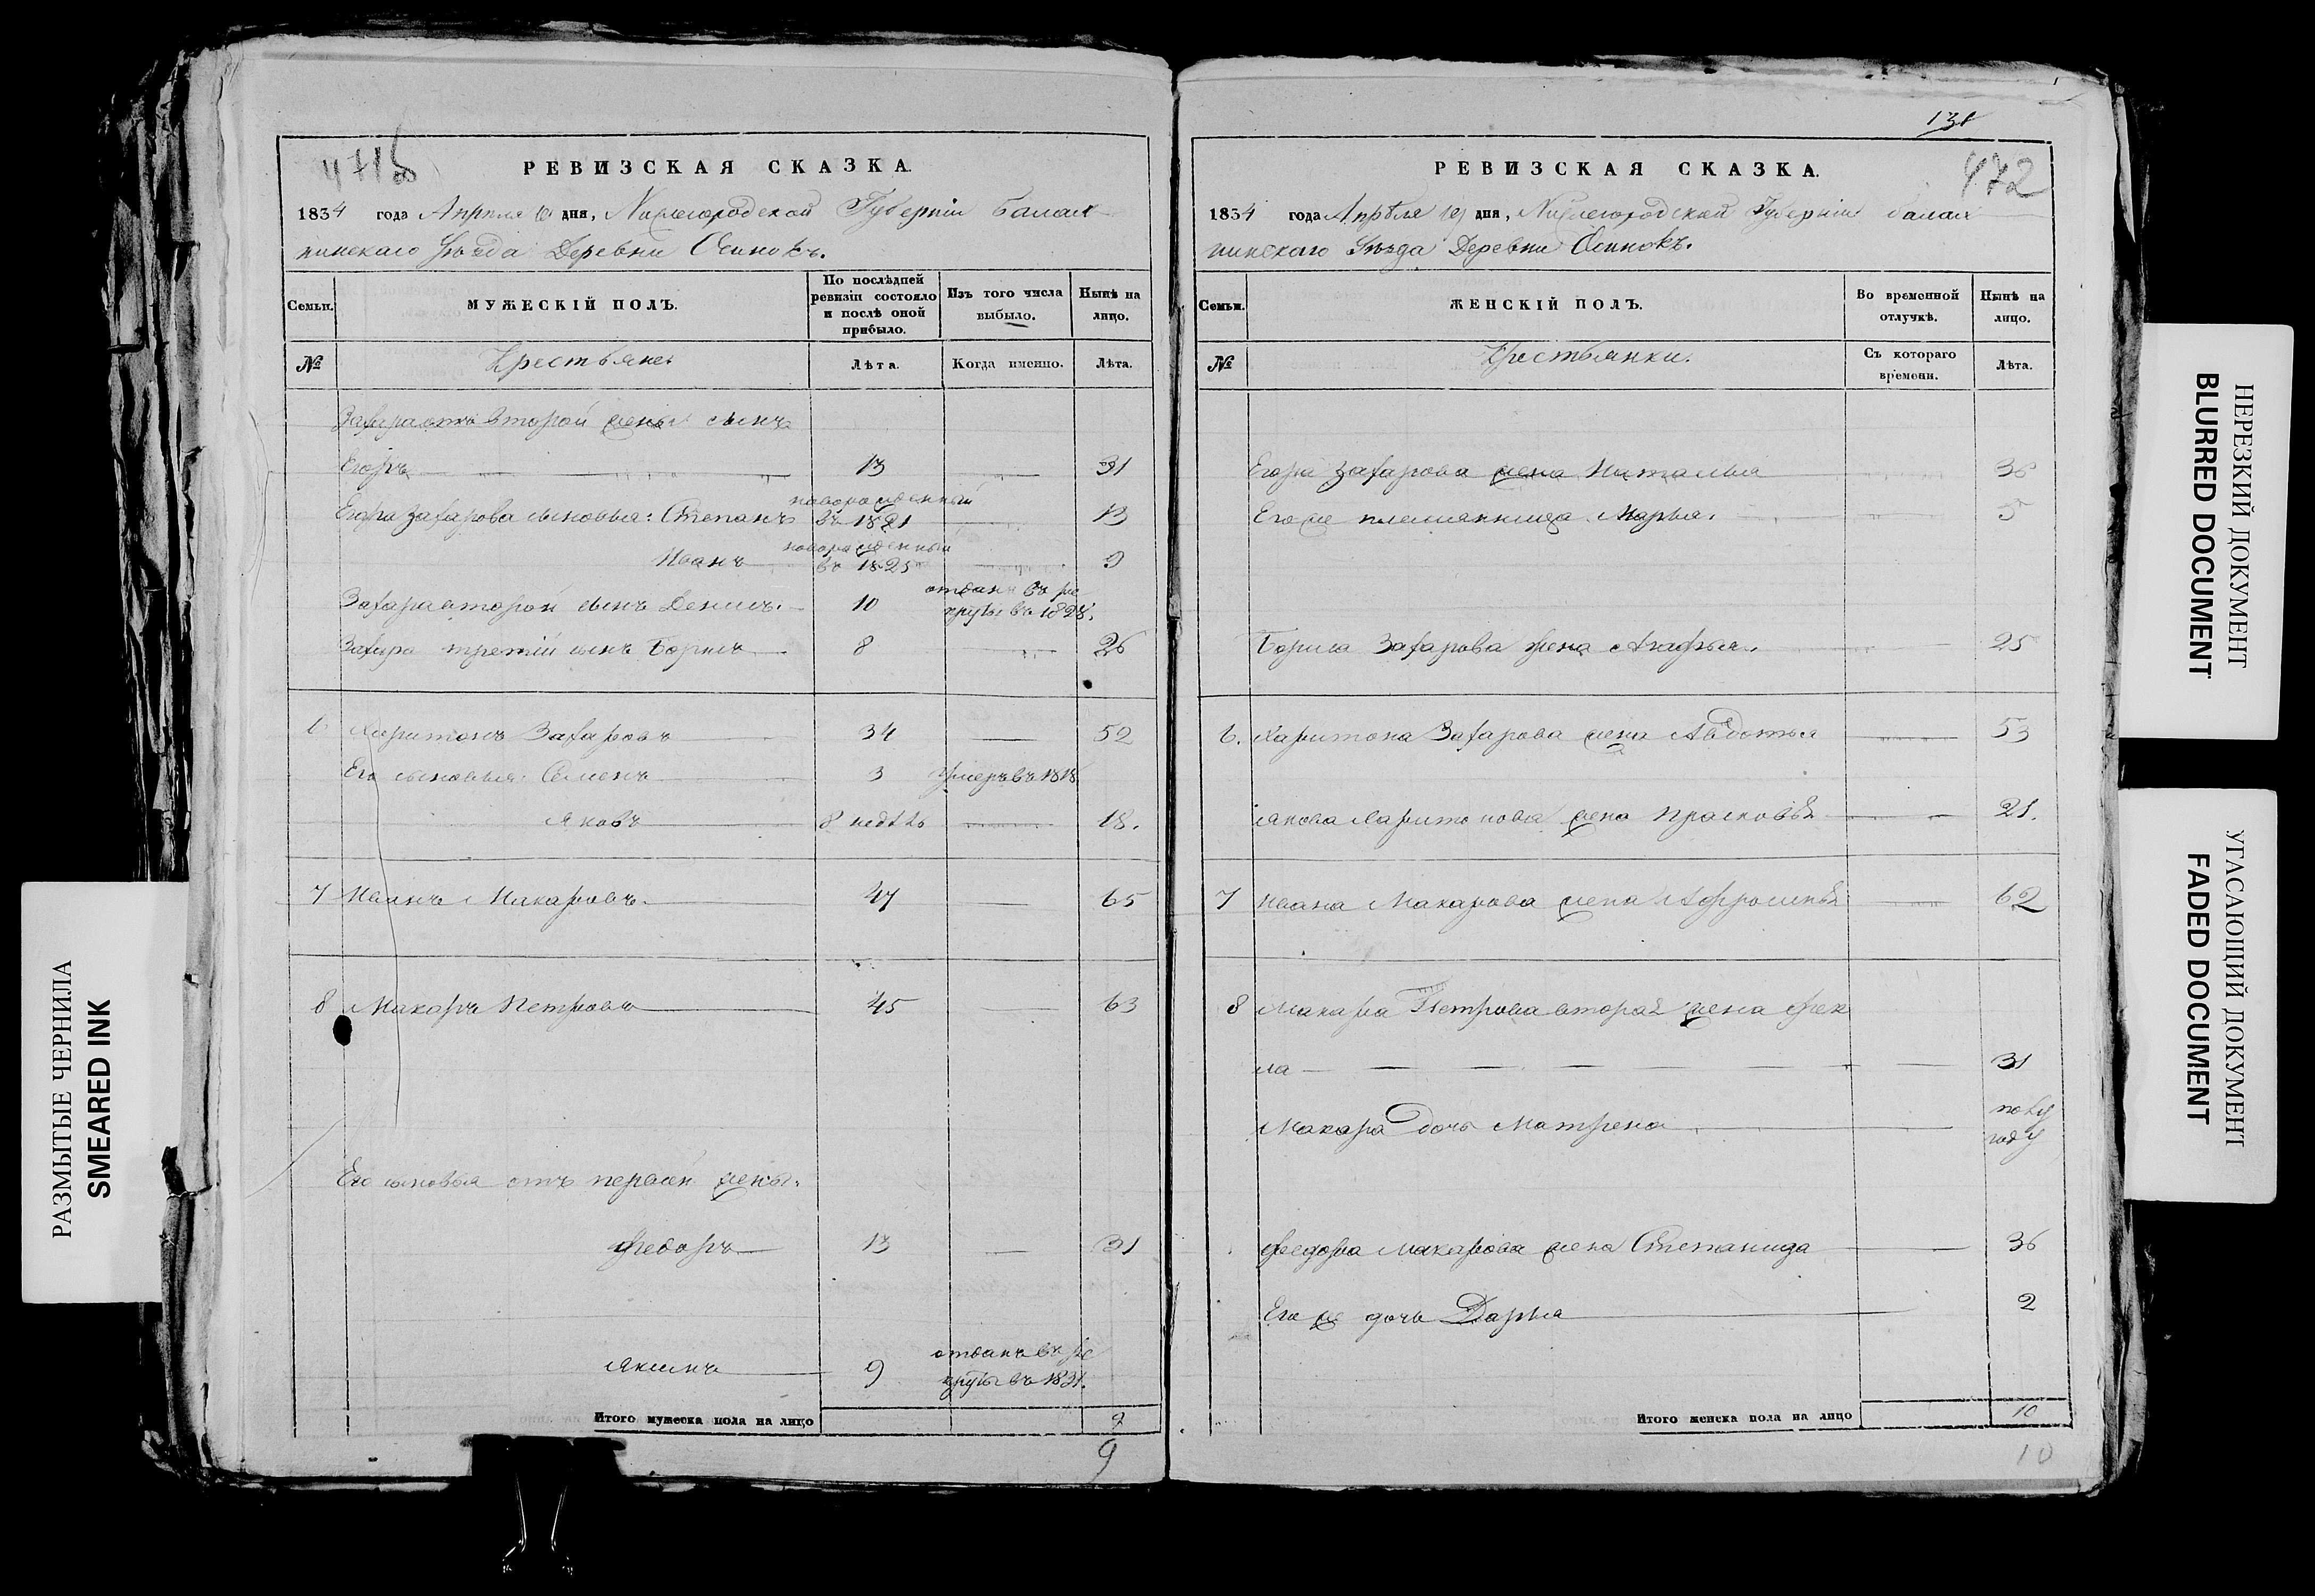 РАЗМЫТЫЕ ЧЕРНИЛА
SMEARED INK
471б
РЕВИЗСКАЯ СКАЗКА.
1834 года Апреля дня, Нижегородской Губернии Балах
нинскаго Уѣзда Деревни Осинокъ.
Семьи.
МУЖЕСКІЙ ПОЛЪ.
По послѣдней ревизіи состояло и послѣ оной прибыло.
Изъ того числа выбыло.
Нынѣ на лицо.
№
Крестьяне.
Лѣта.
Когда именно.
Лѣта.
Захара отъ второй жены сынъ
Егоръ 13 31
Егора Захарова сыновья: Степанъ новорожденный въ 1821 13
Иванъ новорожденный въ 1825 9
Захара второй сынъ Денисъ. 10 отданъ въ ре
круты въ 1828.
Захара третій сынъ Борисъ 8 26
6 Харитонъ Захаровъ 34 52
Его сыновья: Семенъ 3 умеръ въ 1818
Яковъ 8 недѣль 18.
7 Иванъ Макаровъ. 47 65
8 Макаръ Петровъ 45 63
Его сыновья отъ первой жены.
Федоръ 13 31
Якимъ 9 отданъ въ ре
круты въ 1831.
Итого мужеска пола на лицо 9
9
131
472
РЕВИЗСКАЯ СКАЗКА.
1834 года Апрѣля 19 дня, Нижегородской Губерніи Балах
нинскаго Уѣзда Деревни Осинокъ.
Семьи.
ЖЕНСКІЙ ПОЛЪ.
Во временной отлучкѣ.
Нынѣ на лицо.
№
Крестьянки.
Съ котораго времени.
Лѣта.
Егора Захарова жена Наталья
Его же племянница Марья. 5
Бориса Захарова жена Агафья. 25
6. Харитона Захарова жена Авдотья 53
Якова Харитонова жена Прасковья 21.
7 Ивана Макарова жена Афросинья 62
8 Макара Петрова вторая жена Фек
ла 31
Макара дочь Матрена полу
году
Федора Макарова жена Степанида 36
Его же дочь Дарья 2
Итого женска пола на лицо 10
10
НЕРЕЗКИЙ ДОКУМЕНТ
BLURRED DOCUMENT
УГАСАЮЩИЙ ДОКУМЕНТ
FADED DOCUMENT